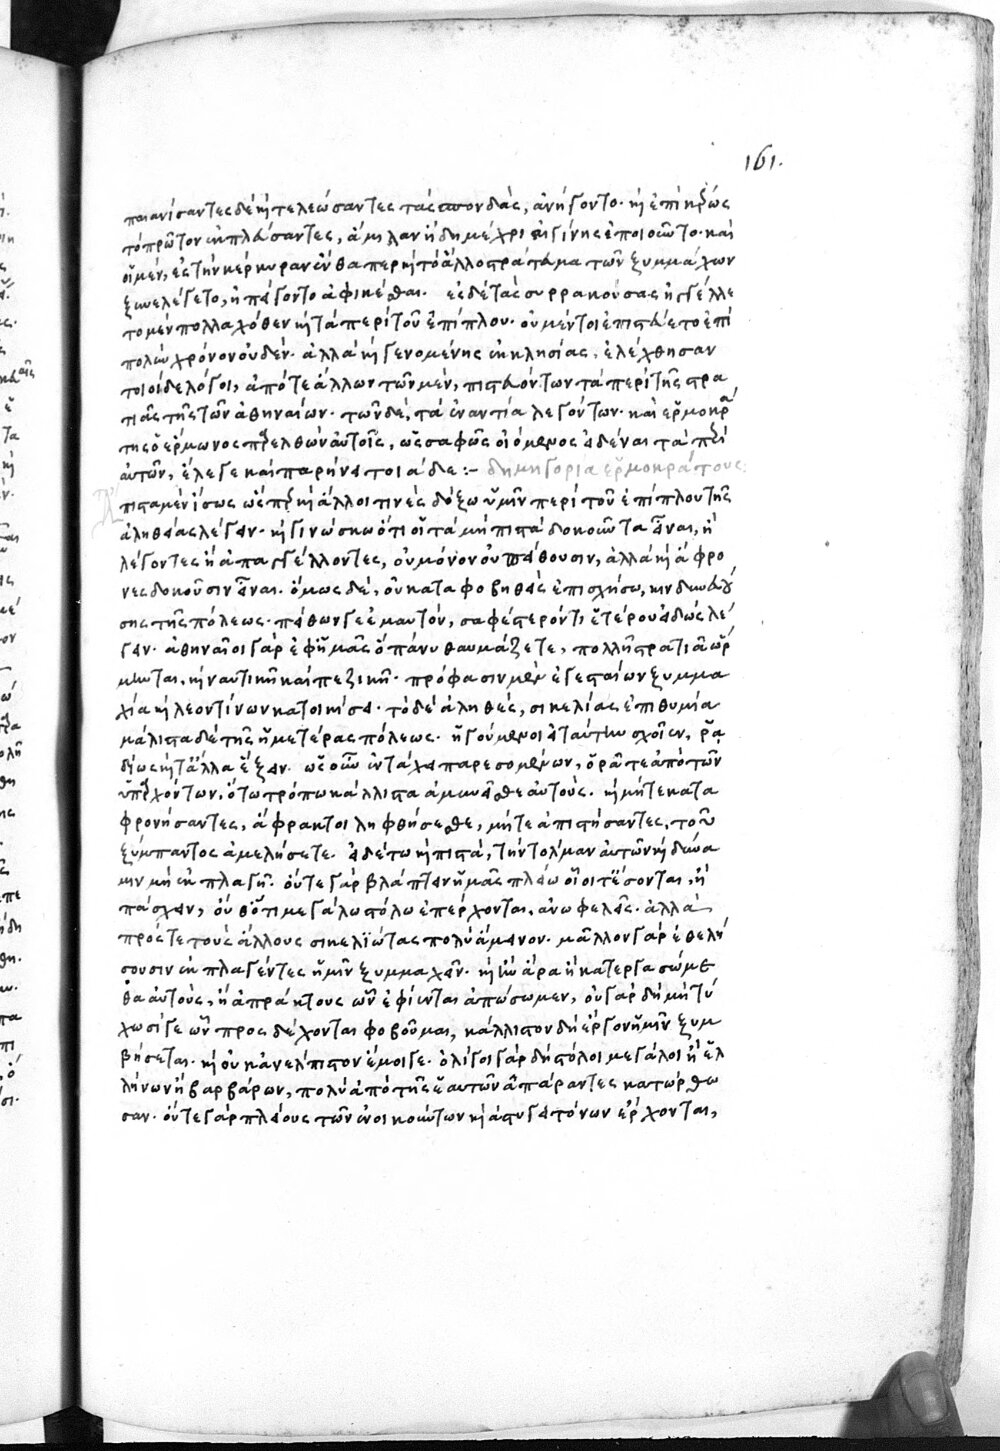 161.
παιανίσαντες δὲ καὶ τελεώσαντες τὰς σπονδὰς, ἀνήγοντο. καὶ ἐπὶ κέρως
τὸ πρῶτον ἐκπλεύσαντες, ἅμιλλαν ἤδη μέχρι αἰγίνης ἐποιοῦντο. καὶ
οἱ μὲν, ἐς τὴν κέρκυραν ἔνθα περ καὶ τὸ ἄλλο στράτευμα τῶν ξυμμάχων
ξυνελέγετο, ἠπείγοντο ἀφικέσθαι. ἐς δὲ τὰς συρρακούσας ἠγγέλλε
το μὲν πολλαχόθεν καὶ τὰ περὶ τοῦ ἐπίπλου. οὐ μέντοι ἐπιστεύετο ἐπὶ
πολὺν χρόνον οὐδέν. ἀλλὰ καὶ γενομένης ἐκκλησίας, ἐλέχθησαν
τοιοίδε λόγοι, ἀπό τε ἄλλων τῶν μὲν, πιστευόντων τὰ περὶ τῆς στρα
τιᾶς τῆς τῶν ἀθηναίων. τῶν δὲ, τὰ ἐναντία λεγόντων. καὶ ἑρμοκρά
της ὁ ἕρμωνος παρελθὼν αὐτοῖς, ὡς σαφῶς οἰόμενος εἰδέναι τὰ περὶ
αὐτῶν, ἔλεγε καὶ παρῄνει τοιάδε :- δημηγορία ἑρμοκράτους:
πιστα μὲν ἴσως ὥσπερ καὶ ἄλλοι τινὲς δόξω ὑμῖν περὶ τοῦ ἐπίπλου τῆς
ἀληθείας λέγειν. καὶ γινώσκω ὅτι οἱ τὰ μὴ πιστὰ δοκοῦντα εἶναι, ἢ
λέγοντες ἢ ἀπαγγέλλοντες, οὐ μόνον οὐ πείθουσιν, ἀλλὰ καὶ ἄφρο
νες δοκοῦσιν εἶναι. ὅμως δὲ, οὐ καταφοβηθεὶς ἐπισχήσω, κινδυνευού
σης τῆς πόλεως. πείθων γε ἐμαυτὸν, σαφέστερόν τι ἑτέρου εἰδὼς λέ
γειν. ἀθηναῖοι γὰρ ἐφ' ἡμᾶς ὃ πάνυ θαυμάζετε, πολλῇ στρατιᾷ ὥρ
μηνται, καὶ ναυτικῇ καὶ πεζικῇ. πρόφασιν μὲν ἐγεσταίων ξυμμα
χίᾳ καὶ λεοντίνων κατοικίσει. τὸ δὲ ἀληθὲς, σικελίας ἐπιθυμίᾳ
μάλιστα δὲ τῆς ἡμετέρας πόλεως. ἡγούμενοι εἰ ταύτην σχοῖεν, ῥᾳ
δίως καὶ τἄλλα ἕξειν. ὡς οὖν ἐν τάχει παρεσομένων, ὁρᾶτε ἀπὸ τῶν
ὑπαρχόντων, ὅτῳ τρόπῳ κάλλιστα ἀμυνεῖσθε αὐτούς. καὶ μήτε κατα
φρονήσαντες, ἄφρακτοι ληφθήσεσθε, μήτε ἀπιστήσαντες, τοῦ
ξύμπαντος ἀμελήσετε. εἰ δέ τῳ καὶ πιστὰ, τὴν τόλμαν αὐτῶν καὶ δύνα
μιν μὴ ἐκπλαγῇ. οὔτε γὰρ βλάπτειν ἡμᾶς πλείω οἷοί τ' ἔσονται, ἢ
πάσχειν, οὔθ' ὅτι μεγάλῳ στόλῳ ἐπέρχονται, ἀνωφελεῖς. ἀλλὰ
πρός τε τοὺς ἄλλους σικελιώτας πολὺ ἄμεινον. μᾶλλον γὰρ ἐθελή
σουσιν ἐκπλαγέντες ἡμῖν ξυμμαχεῖν. καὶ ἢν ἄρα ἢ κατεργασώμε
θα αὐτοὺς, ἢ ἀπράκτους ὧν ἐφίενται ἀπώσωμεν, οὐ γὰρ δὴ μὴ τύ
χωσί γε ὧν προσδέχονται φοβοῦμαι, κάλλιστον δὴ ἔργον ἡμῖν ξυμ
βήσεται. καὶ οὐκ ἀνέλπιστον ἔμοιγε. ὀλίγοι γὰρ δὴ στόλοι μεγάλοι ἢ ἑλ
λήνων ἢ βαρβάρων, πολὺ ἀπὸ τῆς ἑαυτῶν ἀπάραντες κατώρθω
σαν. οὔτε γὰρ πλείους τῶν ἐνοικούντων καὶ ἀστυγειτόνων ἔρχονται,